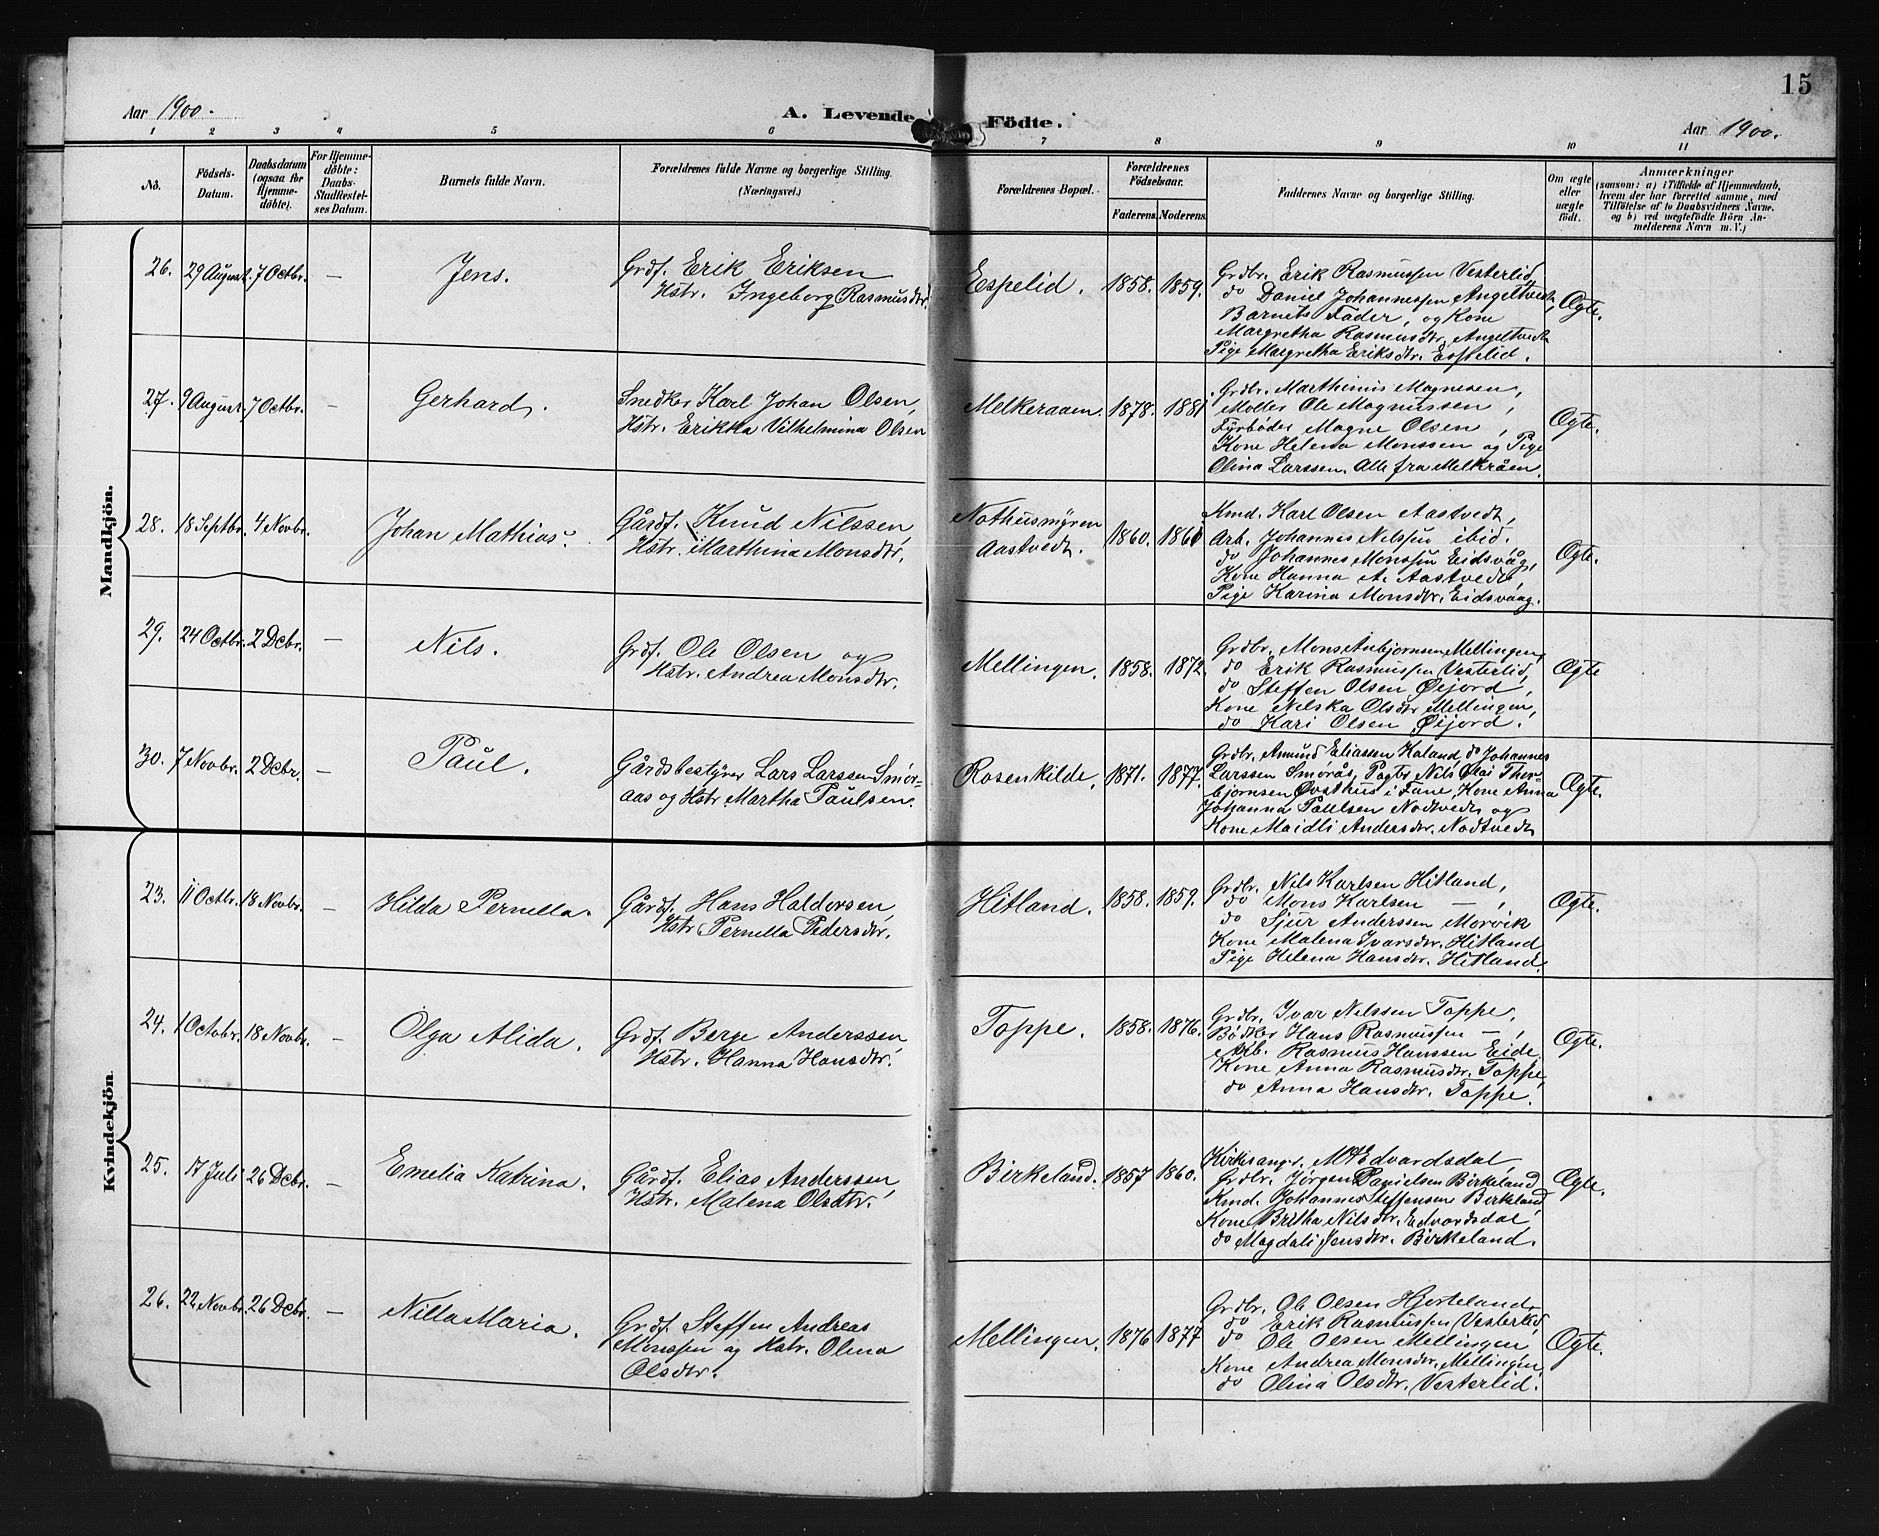 15
Aar 1900.
A. Levende Födte.
Aar 1900.
1 2 3 4 5 6 7 8 9 10 11
No. Födsels-Datum. Daabsdatum (ogsaa for Hjemme-döbte). For Hjemme-döbte: Daabs-Stadfæstel-ses Datum. Barnets fulde Navn. Forældrenes fulde Navne og borgerlige Stilling. (Næringsvei.) Forældrenes Bopæl. Forældrenes Födselsaar. Faderens. Moderens. Faddernes Navne og borgerlige Stilling. Om ægte eller uægte födt. Anmærkninger (saasom: a) i Tilfælde af Hjemmedaab, hvem der har forrettet samme, med Tilföielse af to Daabsvidners Navne, og b) ved uægtefödte Börn An-melderens Navn m. V.)
Mandkjön.
26. 29 August. 7 Octbr. — Jens.
Grdf. Erik Eriksen
Hstr. Ingeborg Rasmusdtr.
Espelid. 1858. 1859.
Grdbr. Erik Rasmussen Vesterlid,
do Daniel Johannessen Angeltvedt,
Barnets Fader, og Kone
Margretha Rasmusdtr. Angeltvedt
Pige Margretha Eriksdtr. Espelid.
Ægte.
27. 9 August. 7 Octbr. — Gerhard.
Snedker Karl Johan Olsen,
Hstr. Erikka Vilhelmina Olsen
Melkeraaen. 1878. 1881.
Grdbr. Marthinus Magnesen,
Møller Ole Magnussen,
Fyrbøder Magne Olsen,
Kone Helena Monssen og Pige
Olina Larssen. Alle fra Melkråen.
Ægte.
28. 18 Septbr. 4 Novbr. — Johan Mathias.
Gårdf. Knud Nilssen,
Hstr. Marthina Monsdtr.
Nothusmyren
Aastvedt. 1860. 1861
Kmd. Karl Olsen Aastvedt,
Arb. Johannes Nilssen ibid.
do Johannes Monssen Eidsvåg,
Kone Hanna A. Aastvedt,
Pige Karina Monsdtr. Eidsvaag.
Ægte.
29. 24 Octbr. 2 Decbr. — Nils.
Grdf. Ole Olsen og
Hstr. Andrea Monsdtr.
Mellingen. 1858. 1872.
Grdbr. Mons Anbjørnsen Mellingen,
do Erik Rasmussen Vesterlid,
do Steffen Olsen Øijord,
Kone Nilska Olsdtr Mellingen,
do Kari Olsen Øijord.
Ægte
30. 7 Novbr. 2 Decbr. — Paul.
Gårdsbestyrer Lars Larssen Smør-
aas og Hstr Martha Paulsen.
Rosenkilde, 1871. 1877.
Grdbr. Amund Eliassen Haland do Johannes
Larssen Smørås, Pagtr Nils Olai Thor-
bjornsen Øvsthus i Fane, Kone Anna
Johanna Paulsen Nodtvedt og
Kone Maidli Andersdtr. Nodtvedt
Ægte.
Kvindekjön.
23. 11 Octbr. 18 Novbr. — Hilda Pernella.
Gårdf. Hans Haldorsen,
Hstr Pernella Pedersdtr.
Hitland. 1858. 1859.
Grdbr. Nils Karlsen Hitland,
do Mons Karlsen —,
do Sjur Anderssen Morvik
Kone Malena Ivarsdtr. Hitland
Pige Helena Hansdtr. Hitland.
Ægte.
24. 1 Octobr. 18 Novbr. — Olga Alida.
Grdf. Berge Anderssen
Hstr. Hanna Hansdtr.
Toppe. 1858. 1876.
Grdbr. Ivar Nilssen Toppe,
Bødker Hans Rasmussen —,
Arb. Rasmus Hanssen Eide,
Kone Anna Rasmusdtr. Toppe,
do Anna Hansdtr. Toppe.
Ægte.
25. 17 Juli 26 Decbr. — Emelia Katrina.
Gårdf. Elias Anderssen,
Hstr. Malena Olsdtr.
Birkeland. 1857 1860.
Kirkesangr. M. Edvardsdal,
Grdbr. Jørgen Danielsen Birkeland,
Kmd. Johannes Steffensen Birkeland,
Kone Britha Nilsdtr. Edvardsdal
do Magdali Jensdtr. Birkeland.
Ægte.
26. 22 Novbr. 26 Decbr. — Nilla Maria.
Grdf. Steffen Andreas
Monssen og Hstr. Olina
Olsdtr.
Mellingen. 1876 1877
Grdbr. Ole Olsen Hjorteland,
do Erik Rasmussen Vesterlid,
do Ole Olsen Mellingen,
Kone Andrea Monsdtr. Mellingen,
do Olina Olsdtr. Vesterlid.
Ægte.